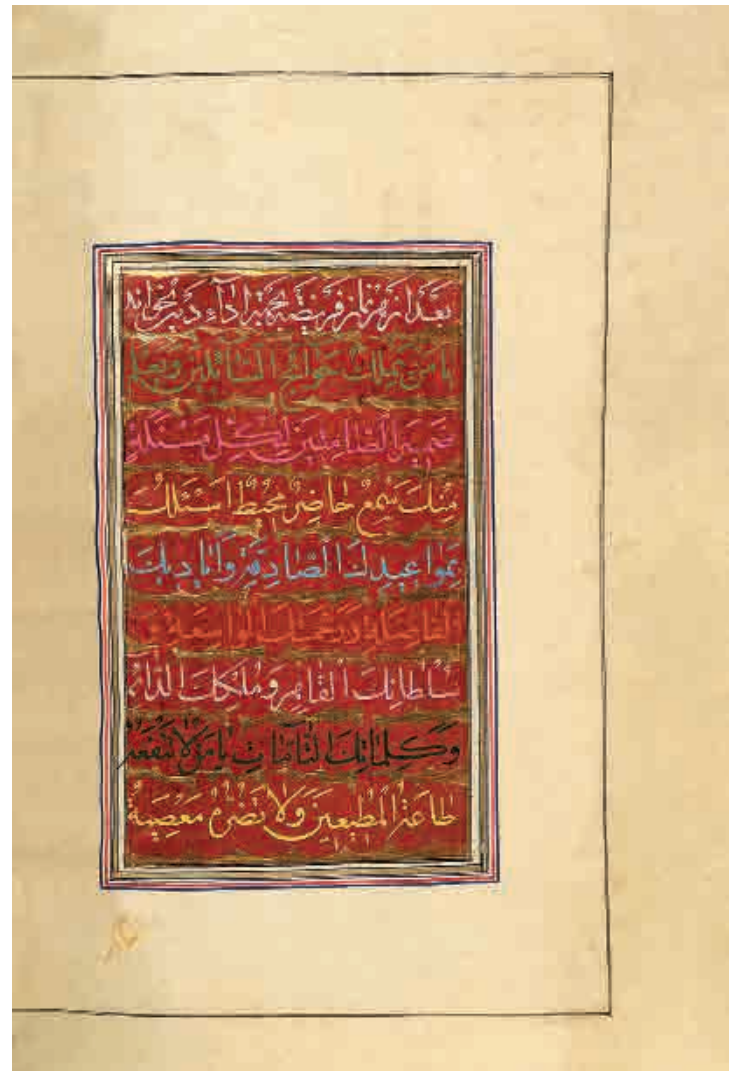 بعد از هر نماز فریضه بجهة اداء دین بخواند
یا مَن یَملِكُ حَوائِجَ السّائلینَ ویَعلَمُ
ضَمیرَ الصّامِتینَ لِکُلِّ مَسئَلَةٍ
مِنكَ سَمعٌ حاضِرٌ مُحیطٌ اَسئَلُكَ
بمَواعیدِكَ الصّادِقَةِ وَاَیادیكَ
الفاضِلَةِ ورَحمَتِكَ الواسِعَةِ
سُلطانِكَ القاهِرِ وَمُلكِكَ الدّائم
وَكَلِماتِكَ التّامّاتِ یا مَن لا تَنفَعُهُ
طاعَةُ المُطیعینَ وَلا تَضُرُّهُ مَعصِیَةُ